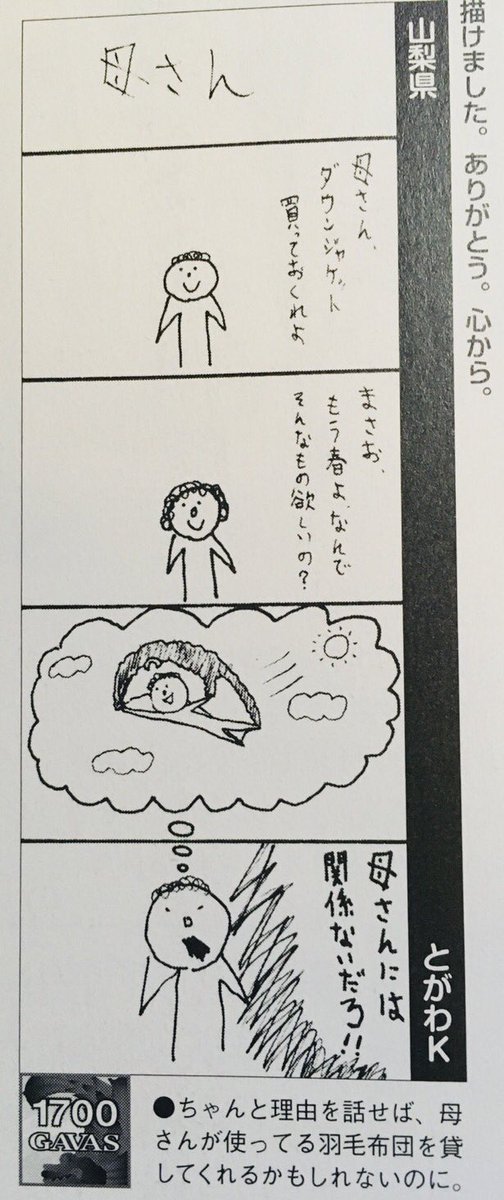 描けました。ありがとう。心から。
山梨県
とがわK
母さん
母さん、
ダウンジャケット
買っておくれよ
まさお、
もう春よ、なんで
そんなもの欲しいの?
母さんには
関係ないだろ!!
1700
GAVAS
●ちゃんと理由を話せば、母
さんが使ってる羽毛布団を貸
してくれるかもしれないのに。